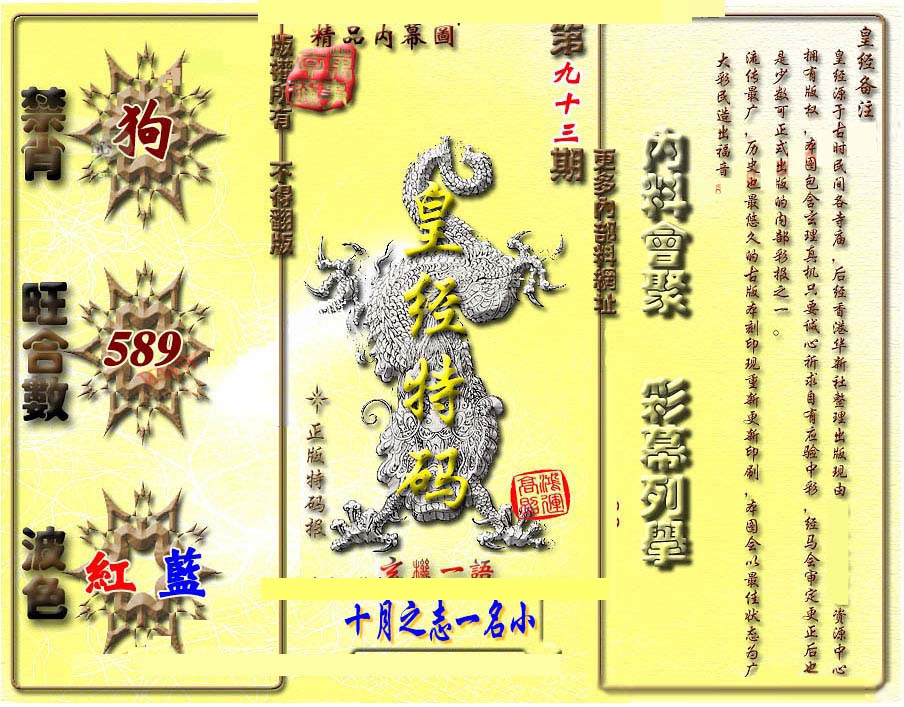 皇经备注
皇经源于古时民间各寺庙,后经香港华新社整理出版现由 资源中心
拥有版权,本图包含玄理真机只要诚心祈求自有应验中彩,经马会审定更正后也
是少数可正式出版的内部彩报之一。
流传最广,历史也最悠久的古版本刻印现重新更新印刷,本图会以最佳状态为广
大彩民造出福音
内料會聚
彩幕列舉
更多內部料網址
第九十三期
精品内幕圖
版權所有 不得翻版
皇经特码
正版特码报
鴻運高照
玄機一語
十月之志一名小
禁肖
狗
旺合數
589
波色
紅 藍